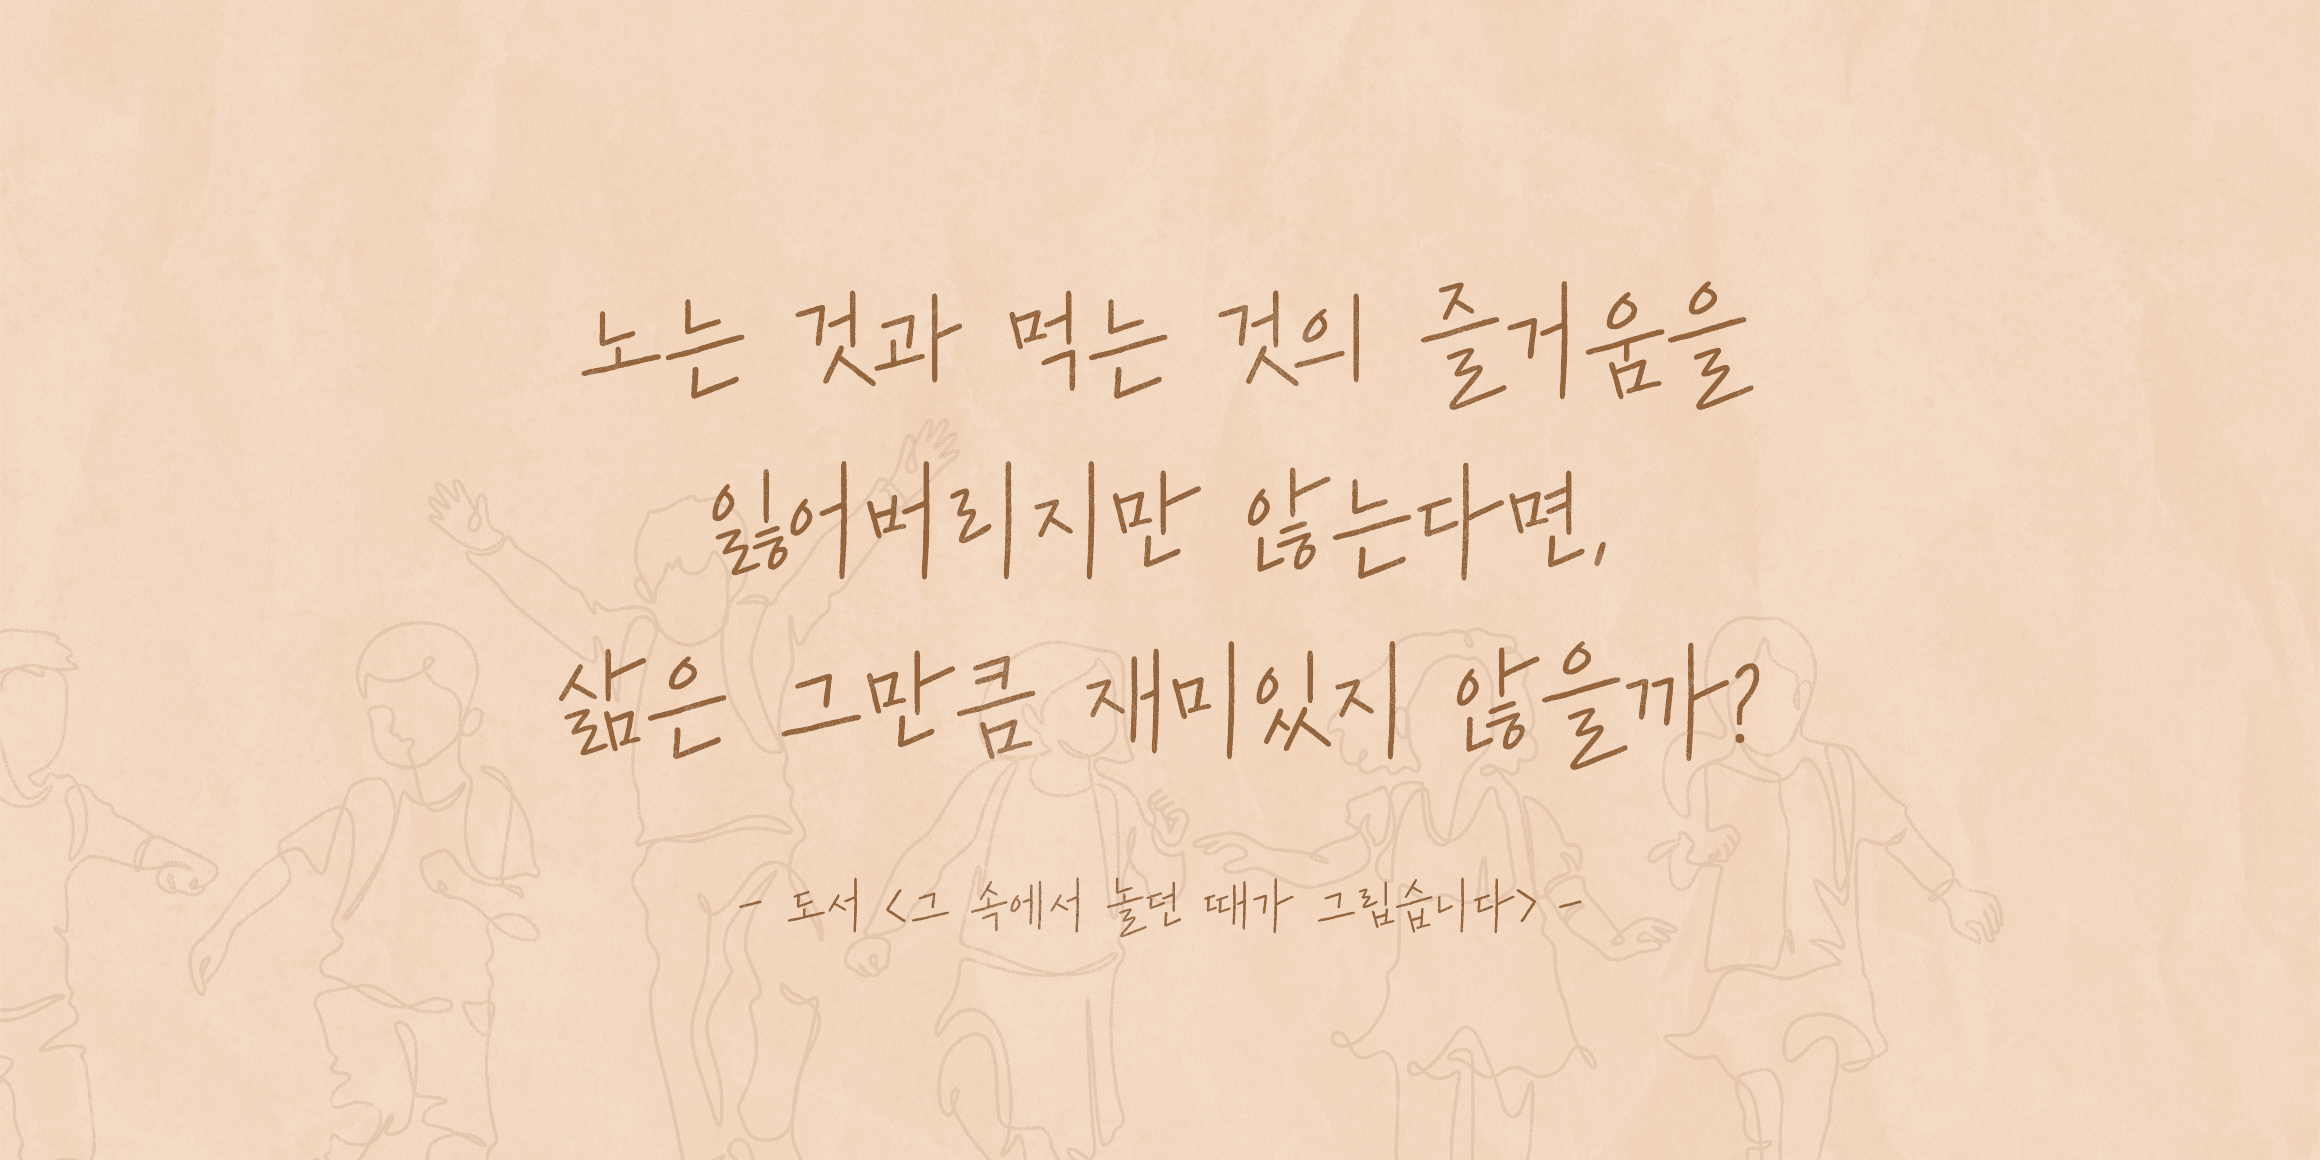 노는 것과 먹는 것의 즐거움을
잃어버리지만 않는다면,
삶은 그만큼 재미있지 않을까?
- 도서 <그 속에서 놀던 때가 그립습니다> -